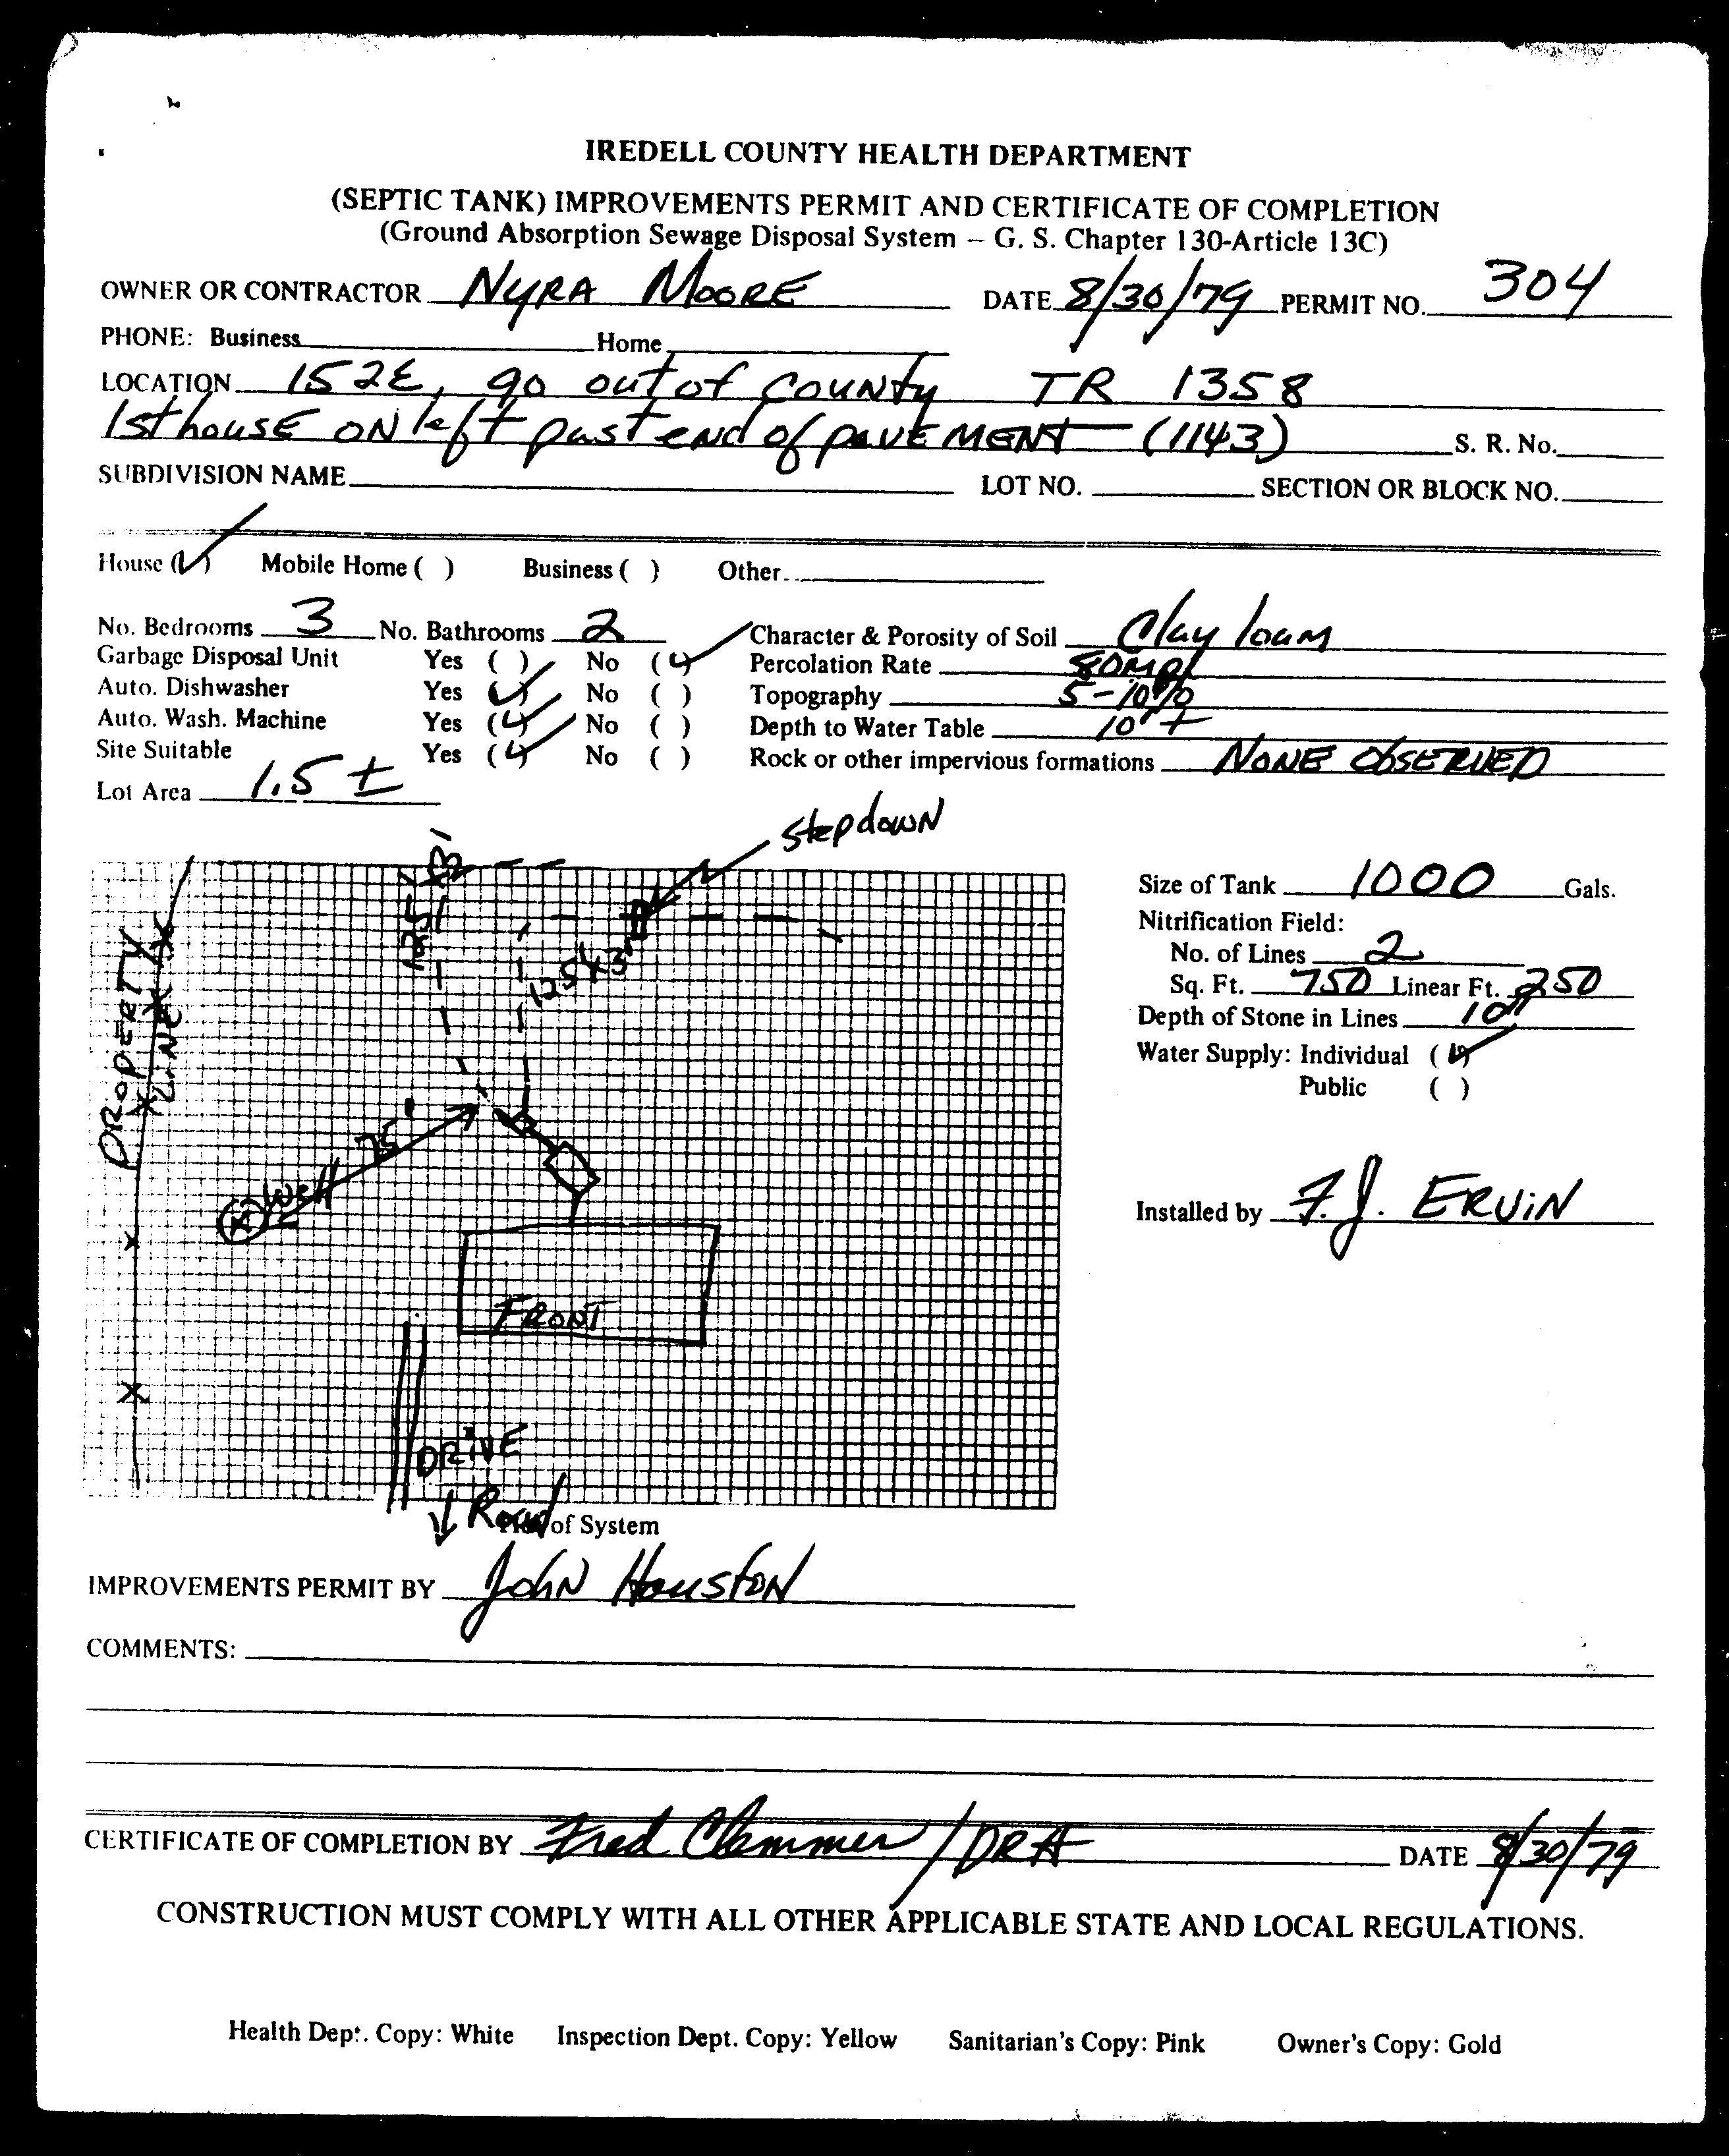 IREDELL COUNTY HEALTH DEPARTMENT
(SEPTIC TANK) IMPROVEMENTS PERMIT AND CERTIFICATE OF COMPLETION
(Ground Absorption Sewage Disposal System – G. S. Chapter 130-Article 13C)
OWNER OR CONTRACTOR NyRA MOORE DATE 8/30/79 PERMIT NO. 304
PHONE: Business Home
LOCATION 152E, go out of county TR 1358
1st house on left past end of pavement (1143) S. R. No.
SUBDIVISION NAME LOT NO. SECTION OR BLOCK NO.
House (✓) Mobile Home ( ) Business ( ) Other
No. Bedrooms 3 No. Bathrooms 2 Character & Porosity of Soil Clay loam
Garbage Disposal Unit Yes ( ) No (✓) Percolation Rate 80 MPI
Auto. Dishwasher Yes (✓) No ( ) Topography 5-10%
Auto. Wash. Machine Yes (✓) No ( ) Depth to Water Table 10'+
Site Suitable Yes (✓) No ( ) Rock or other impervious formations NONE OBSERVED
Lot Area 1.5 ±
stepdown
125'X3'
125'X3'
PROPERTY
LINE
75'
Well
FRONT
DRIVE
↓ Road
of System
Size of Tank 1000 Gals.
Nitrification Field:
No. of Lines 2
Sq. Ft. 750 Linear Ft. 250
Depth of Stone in Lines 10"
Water Supply: Individual (✓)
Public ( )
Installed by F. J. ERVIN
IMPROVEMENTS PERMIT BY John Houston
COMMENTS:
CERTIFICATE OF COMPLETION BY Fred Clemmer / DRA DATE 8/30/79
CONSTRUCTION MUST COMPLY WITH ALL OTHER APPLICABLE STATE AND LOCAL REGULATIONS.
Health Dept. Copy: White Inspection Dept. Copy: Yellow Sanitarian's Copy: Pink Owner's Copy: Gold